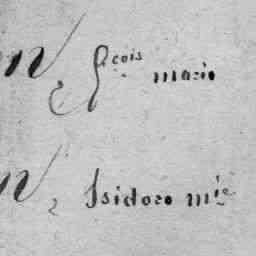 n, fçois marie
n, Isidore mie